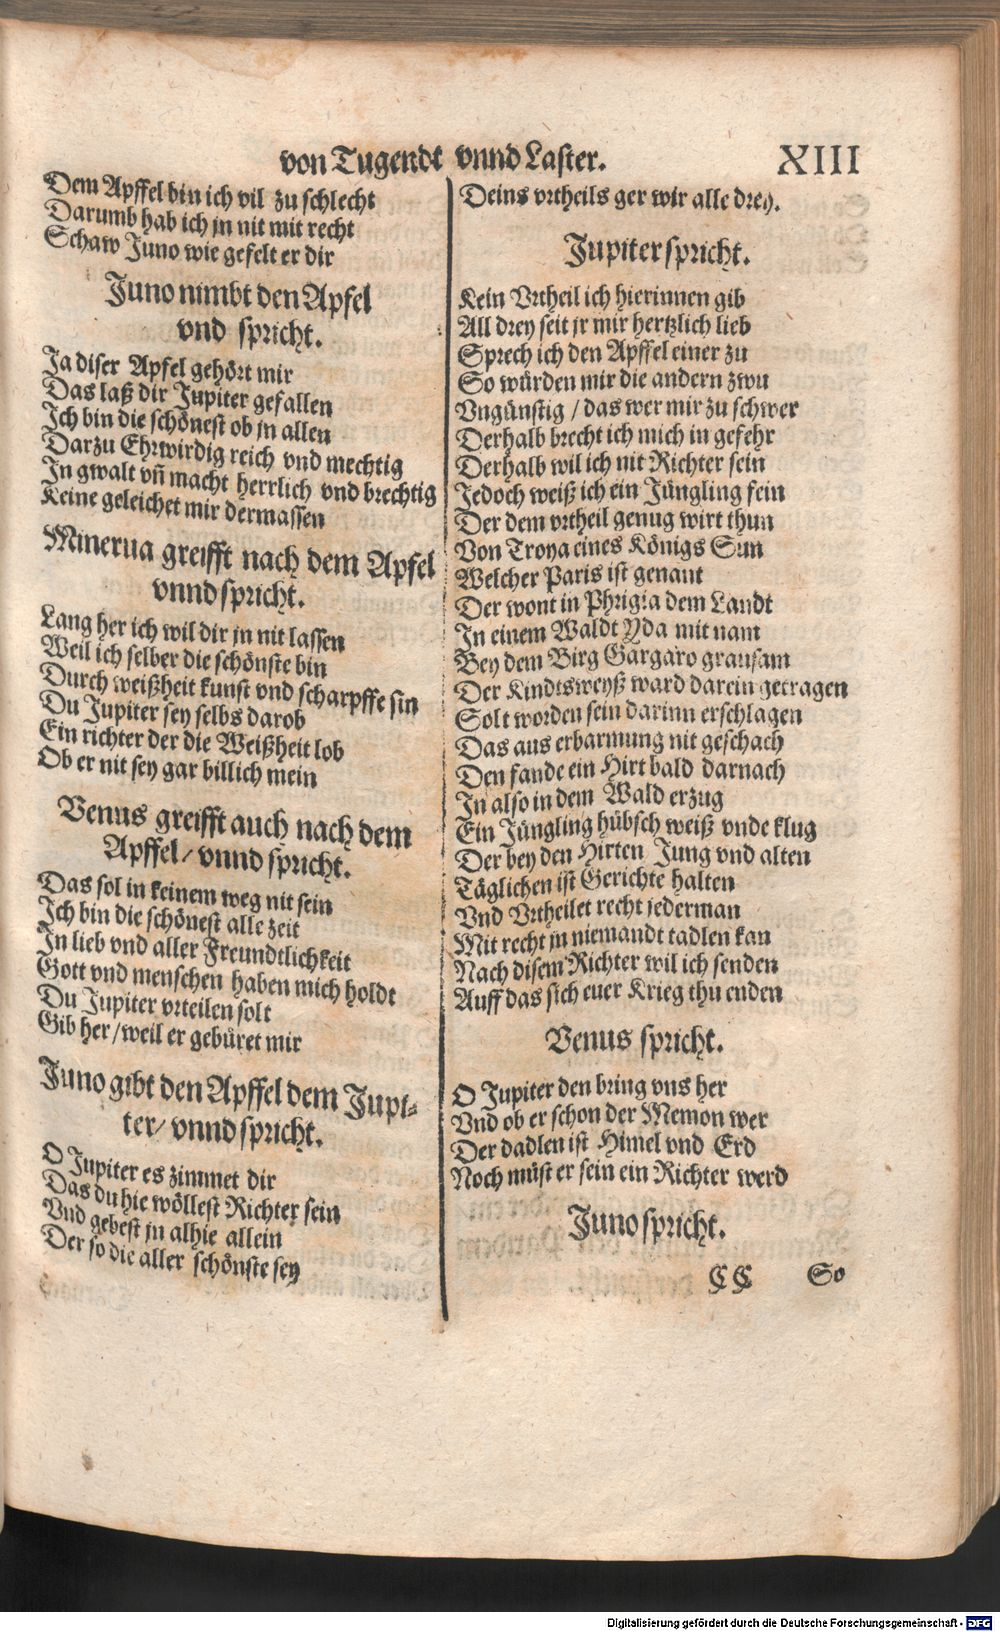 von Tugendt vnnd Laster. XIII
Dem Apffel bin ich vil zu schlecht
Darumb hab ich jn nit mit recht
Schaw Juno wie gefelt er dir
Juno nimbt den Apfel
vnd spricht.
Ja diser Apfel gehört mir
Das laß dir Jupiter gefallen
Ich bin die schönest ob jn allen
Darzu Ehrwirdig reich vnd mechtig
In gwalt vñ macht herrlich vnd brechtig
Keine geleichet mir dermassen
Minerua greifft nach dem Apfel
vnnd spricht.
Lang her ich wil dir jn nit lassen
Weil ich selber die schönste bin
Durch weißheit kunst vnd scharpffe sin
Du Jupiter sey selbs darob
Ein richter der die Weißheit lob
Ob er nit sey gar billich mein
Venus greifft auch nach dem
Apffel/ vnnd spricht.
Das sol in keinem weg nit sein
Ich bin die schönest alle zeit
In lieb vnd aller Freundtlichkeit
Gott vnd menschen haben mich holdt
Du Jupiter vrteilen solt
Gib her/weil er gebüret mir
Juno gibt den Apffel dem Jupi-
ter/ vnnd spricht.
O Jupiter es zimmet dir
Das du hie wöllest Richter sein
Vnd gebest jn alhie allein
Der so die aller schönste sey
Deins vrtheils ger wir alle drey.
Jupiter spricht.
Kein Vrtheil ich hierinnen gib
All drey seit jr mir hertzlich lieb
Sprech ich den Apffel einer zu
So würden mir die andern zwu
Vngünstig / das wer mir zu schwer
Derhalb brecht ich mich in gefehr
Derhalb wil ich nit Richter sein
Jedoch weiß ich ein Jüngling fein
Der dem vrtheil genug wirt thun
Von Troya eines Königs Sun
Welcher Paris ist genant
Der wont in Phrigia dem Landt
In einem Waldt Yda mit nam
Bey dem Birg Gargaro grausam
Der Kindtsweyß ward darein getragen
Solt worden sein darinn erschlagen
Das aus erbarmung nit geschach
Den fande ein Hirt bald darnach
In also in dem Wald erzug
Ein Jüngling hübsch weiß vnde klug
Der bey den Hirten Jung vnd alten
Täglichen ist Gerichte halten
Vnd Vrtheilet recht jederman
Mit recht jn niemandt tadlen kan
Nach disem Richter wil ich senden
Auff das sich euer Krieg thu enden
Venus spricht.
O Jupiter den bring vns her
Vnd ob er schon der Memon wer
Der dadlen ist Himel vnd Erd
Noch müst er sein ein Richter werd
Juno spricht.
CC So
Digitalisierung gefördert durch die Deutsche Forschungsgemeinschaft - DFG